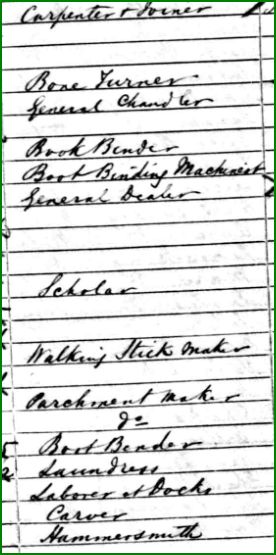 Carpenter & Joiner
Bone Turner
General Chandler
Book Binder
Boot Binding Machinist
General Dealer
Scholar
Walking Stick Maker
Parchment Maker
Do
Boot Bender
Laundress
Laborer at Docks
Carver
Hammersmith